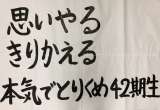 思いやる
きりかえる
本気でとりくめ42期生